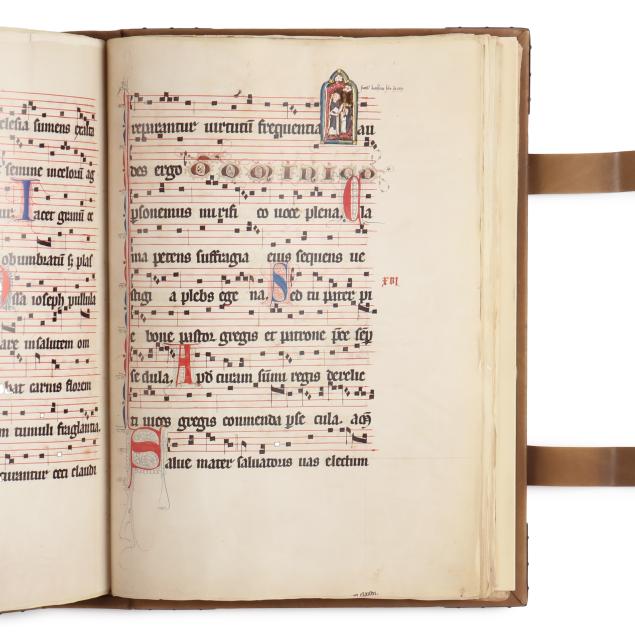 clesia sumens exalti
semine incelorū ag
tur. Iacet granū oc
obumbratū sꝫ plas
ossa ioseph pullula
are insalutem om
bat carnis florem
m tumuli fraglantia.
curantur ceci claudi
reparantur uirtutū frequentia
au
des ergo DOMINICO
psonemus mirifi co uoce plena. Cla
ma petens suffragia eius sequens ue
stigi a plebs ege na. Sed tu pater pi
XVI
e bone pastor gregis et patrone pce sep
sedula. Apd curam sūmi regis derelic
ti uices gregis commenda pse cula. am
Salue mater saluatoris uas electum
m claudi.